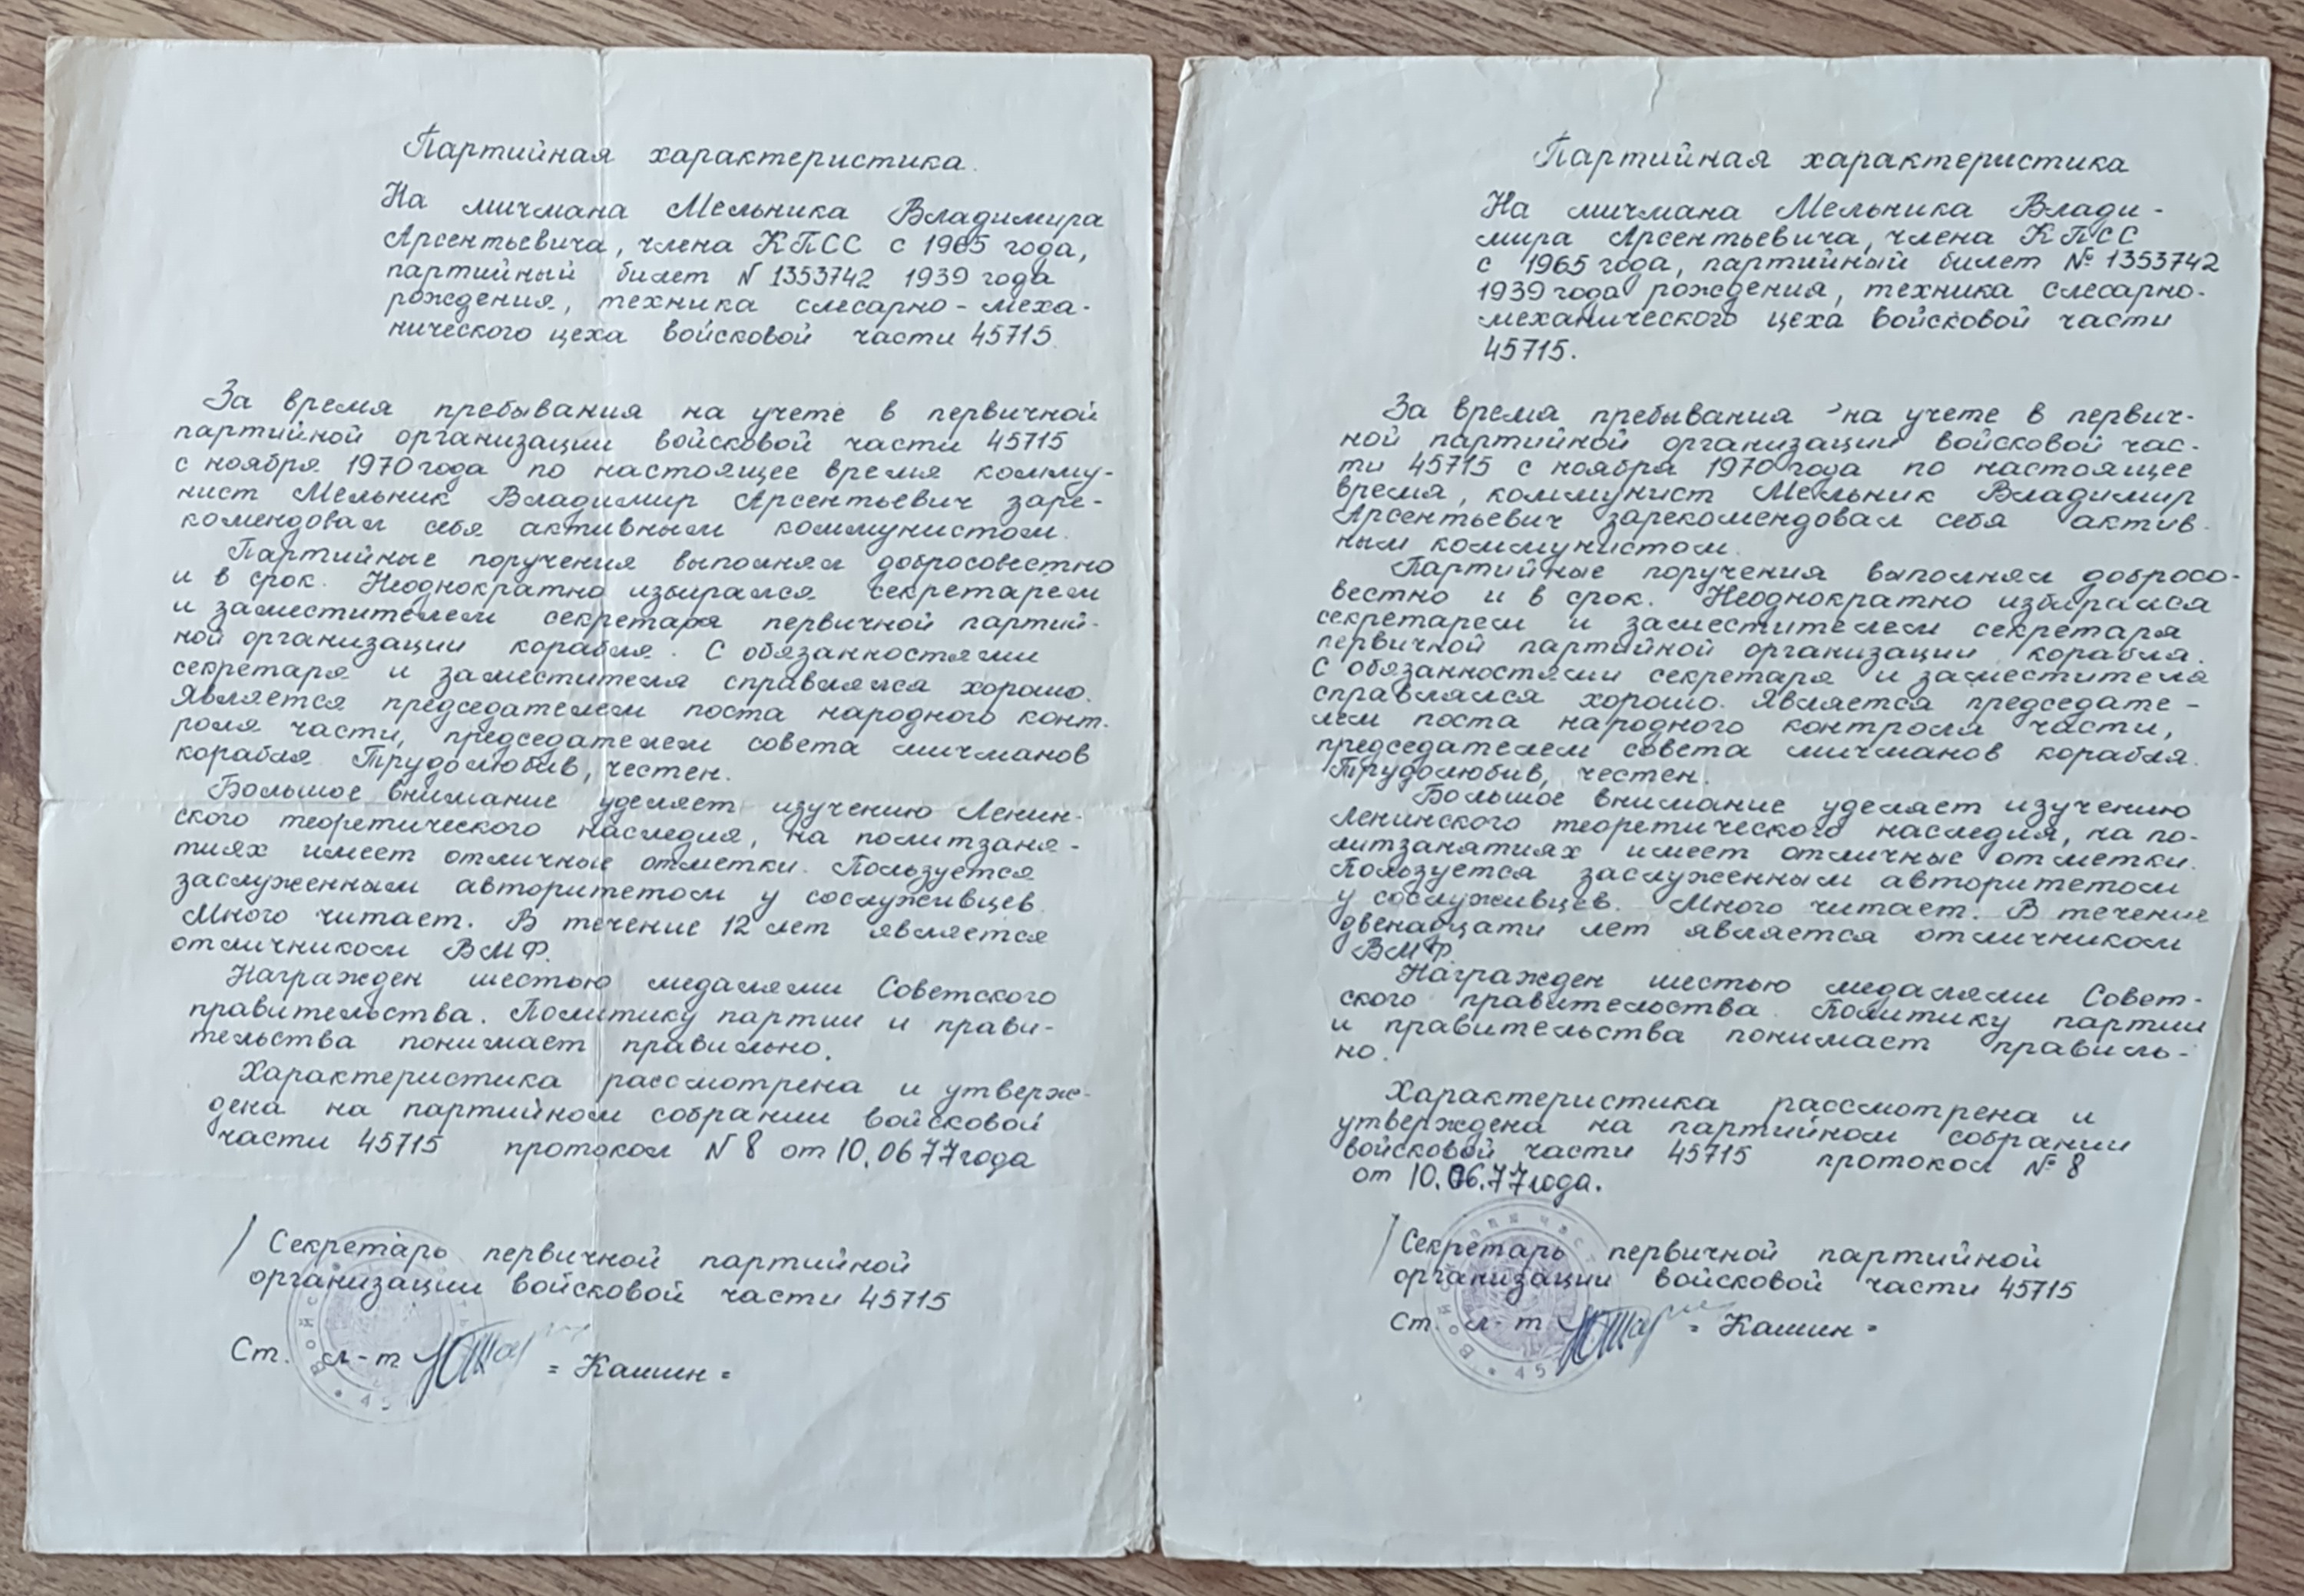 Партийная характеристика.
На мичмана Мельника Владимира
Арсентьевича, члена КПСС с 1965 года,
партийный билет N 1353742 1939 года
рождения, техника слесарно-меха-
нического цеха войсковой части 45715.
За время пребывания на учете в первичной
партийной организации войсковой части 45715
с ноября 1970 года по настоящее время комму-
нист Мельник Владимир Арсентьевич заре-
комендовал себя активным коммунистом.
Партийные поручения выполнял добросовестно
и в срок. Неоднократно избирался секретарем
и заместителем секретаря первичной партий-
ной организации корабля. С обязанностями
секретаря и заместителя справлялся хорошо.
Является председателем поста народного конт-
роля части, председателем совета мичманов
корабля. Трудолюбив, честен.
Большое внимание уделяет изучению Ленин-
ского теоретического наследия, на политзаня-
тиях имеет отличные отметки. Пользуется
заслуженным авторитетом у сослуживцев.
Много читает. В течение 12 лет является
отличником ВМФ.
Награжден шестью медалями Советского
правительства. Политику партии и прави-
тельства понимает правильно.
Характеристика рассмотрена и утверж-
дена на партийном собрании войсковой
части 45715 протокол N 8 от 10.06 77 года
Секретарь первичной партийной
организации войсковой части 45715
Ст. л-т = Кашин =
Партийная характеристика
На мичмана Мельника Влади-
мира Арсентьевича, члена КПСС
с 1965 года, партийный билет № 1353742
1939 года рождения, техника слесарно-
механического цеха войсковой части
45715.
За время пребывания на учете в первич-
ной партийной организации войсковой час-
ти 45715 с ноября 1970 года по настоящее
время, коммунист Мельник Владимир
Арсентьевич зарекомендовал себя актив-
ным коммунистом.
Партийные поручения выполнял добросо-
вестно и в срок. Неоднократно избирался
секретарем и заместителем секретаря
первичной партийной организации корабля.
С обязанностями секретаря и заместителя
справлялся хорошо. Является председате-
лем поста народного контроля части,
председателем совета мичманов корабля.
Трудолюбив, честен.
Большое внимание уделяет изучению
Ленинского теоретического наследия, на по-
литзанятиях имеет отличные отметки.
Пользуется заслуженным авторитетом
у сослуживцев. Много читает. В течение
двенадцати лет является отличником
ВМФ.
Награжден шестью медалями Совет-
ского правительства. Политику партии
и правительства понимает правиль-
но.
Характеристика рассмотрена и
утверждена на партийном собрании
войсковой части 45715 протокол № 8
от 10.06.77 года.
Секретарь первичной партийной
организации войсковой части 45715
Ст. л-т = Кашин =